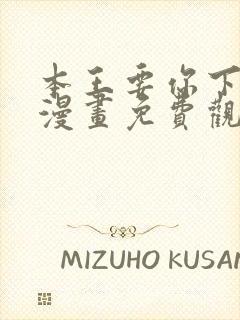 本王要你下
漫畫免費觀
MIZUHO KUSAN